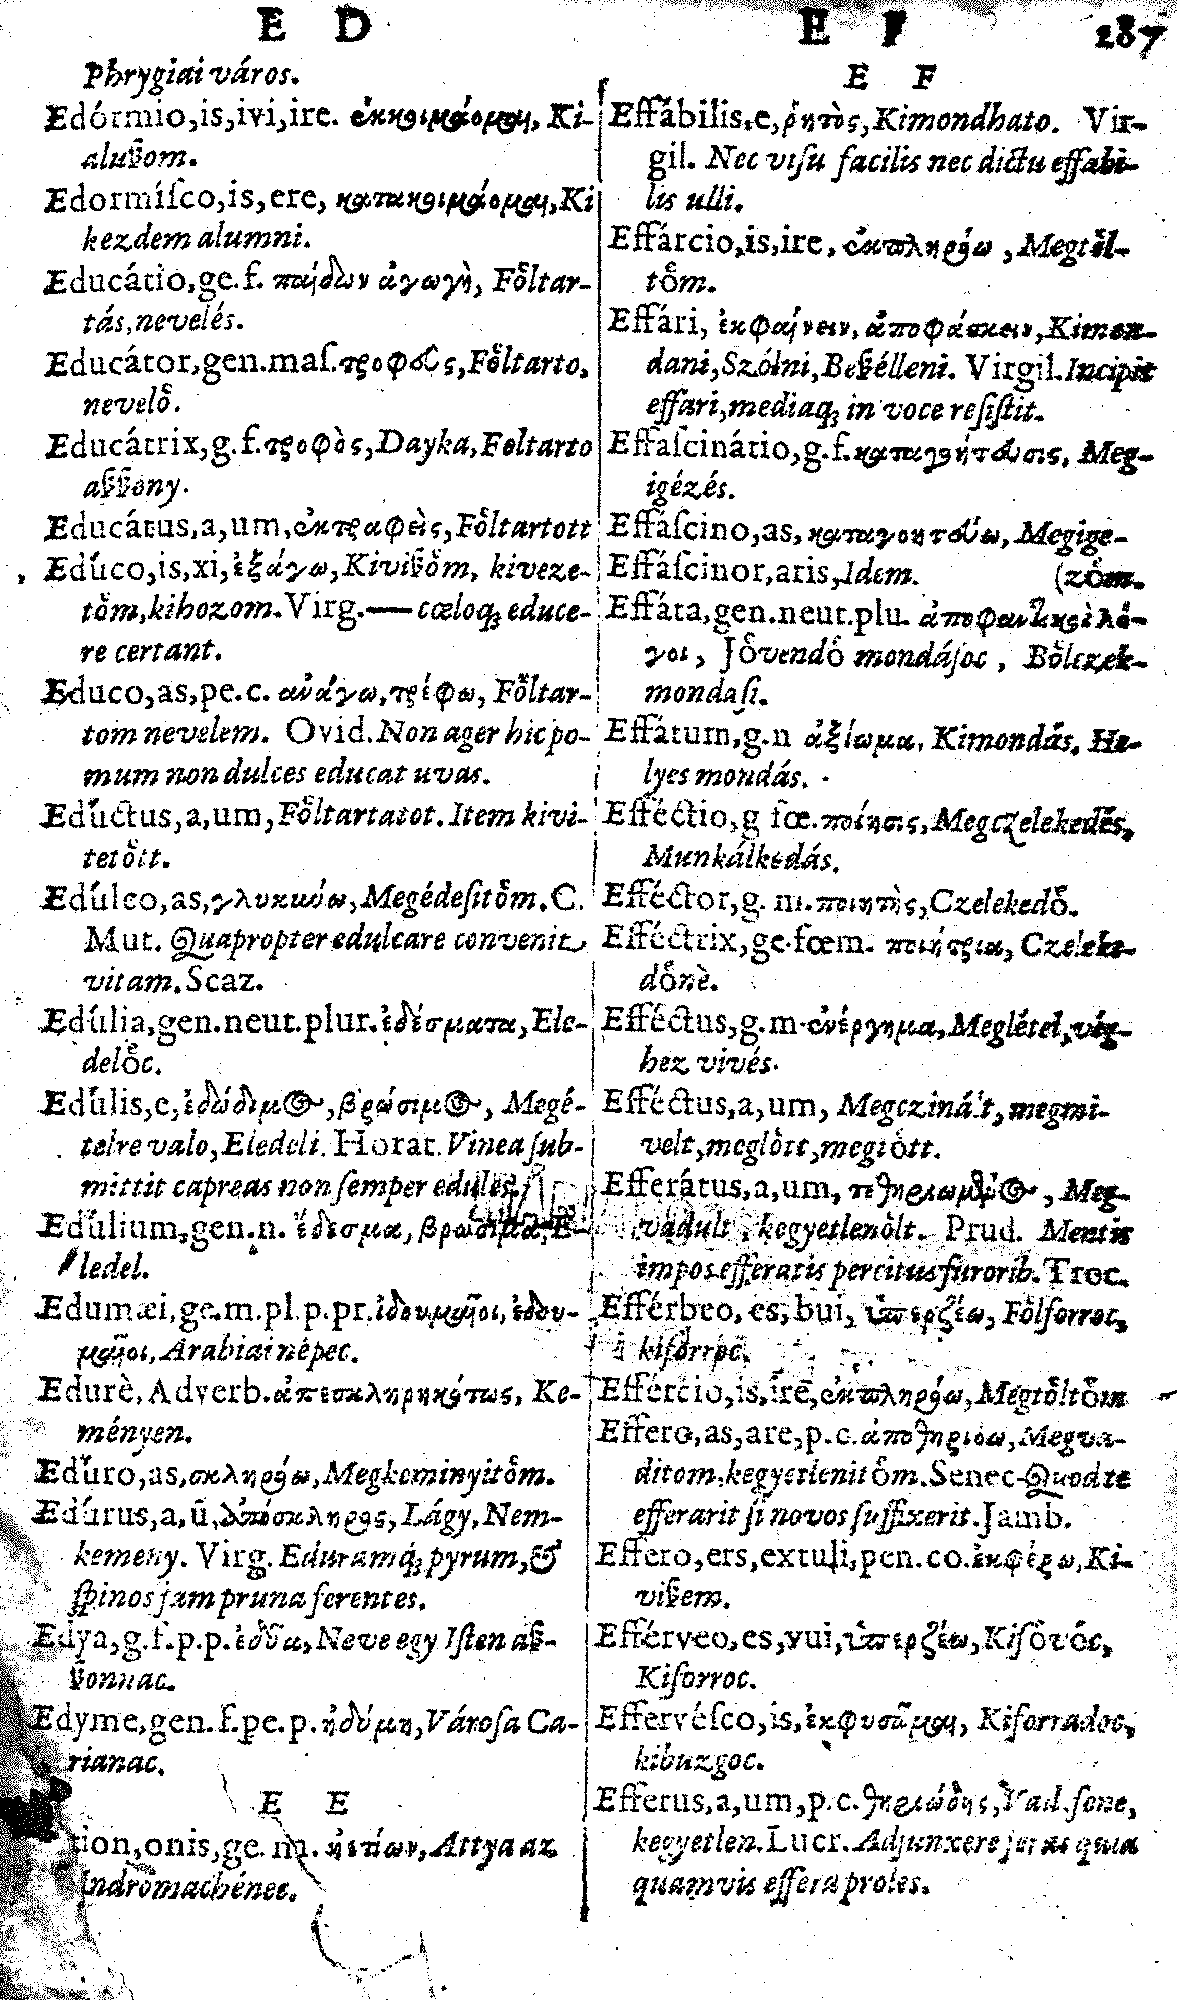 E D
Phrygiai város.
Edórmio,is,ivi,ire. ἐκκοιμάομαι, Ki-
aluſzom.
Edormíſco,is,ere, κατακοιμάομαι,Ki
kezdem alumni.
Educátio,ge.f. παίδων ἀγωγὴ, Fo̊ltar-
tás,nevelés.
Educátor,gen.maſ.τροφὸς,Fo̊ltarto,
nevelo̊.
Educátrix,g.f.τροφὸς,Dayka,Foltarto
aſzſzony.
Educátus,a,um,ἐκτραφεὶς,Fo̊ltartott
Edúco,is,xi,ἐξάγω,Kiviſzo̊m, kiveze-
to̊m,kihozom.Virg.— cœloq; educe-
re certant.
Educo,as,pe.c. ανάγω,τρέφω, Fo̊ltar-
tom nevelem. Ovid.Non ager hic po-
mum non dulces educat uvas.
Edúctus,a,um,Fo̊ltartatot.Item kivi-
teto̊tt.
Edúlco,as,γλυκιόω,Megédeſito̊m.C.
Mut. Quapropter edulcare convenit
vitam.Scaz.
Edúlia,gen.neut.plur.ἐδέσματα,Ele-
delo̊c.
Edúlis,e,ἐδώδιμος,βρώσιμος, Megé-
telre valo,Eledeli.Horat.Vinea ſub-
mittit capreas non ſemper edules.
Edúlium,gen.n. ἔδεσμα, βρώσιμα,E-
ledel.
Edumæi,ge.m.pl.p.pr.ἰδουμαῖοι,ἐδου-
μαῖοι,Arabiai nèpec.
Edurè,Adverb.ἀπεσκληρηκότως, Ke-
ményen.
Edúro,as,σκληρόω,Megkeminyito̊m.
Edúrus,a,ũ,ἀπόσκληρος,Lágy,Nem-
kemeny. Virg.Eduramq; pyrum,&
ſpinos jam pruna ferentes.
Edya,g.f.p.p.ἐδύα,Neve egy Iſten aſz-
ſzonnac.
Edyme,gen.f.pe.p.ἠδύμη,Városa Ca-
rianac.
E E
tion,onis,ge.m.ἠετίων,Attya az
Andromachénec.
E F 287
E F
Effábilis,e,ῥητὸς,Kimondhato. Vir-
gil. Nec viſu facilis nec dictu effabi-
lis ulli.
Effárcio,is,ire,ἐκπληρόω,Megto̊l-
to̊m.
Effári, ἐκφαίνειν,ἀποφάσκειν,Kimon-
dani,Szólni,Beſzélleni. Virgil.Incipit
effari,mediaq; in voce reſiſtit.
Effaſcinátio,g.f.καταγοήτευσις, Meg-
igézés.
Effáſcino,as,καταγοητεύω,Megige-
Effáſcinor,aris,Idem. (zo̊m.
Effáta,gen.neut.plu. ἀποφαντικοὶ λό-
γοι, Jo̊vendo̊ mondáſoc, Bo̊lczek-
mondaſi.
Effátum,g.n ἀξίωμα, Kimondás, He-
lyes mondás.
Efféctio,g fœ.ποίησις,Megczelekedés,
Munkálkedás.
Efféctor,g. m.ποιητὴς,Czelekedo̊.
Efféctrix,ge.fœm. ποιήτρια, Czeleke-
do̊nè.
Efféctus,g.m.ἐνέργημα,Meglétel,vég-
hez vivés.
Efféctus,a,um, Megczinált,megmi-
velt,meglo̊tt,megto̊tt.
Efferátus,a,um, τεθηριωμένος, Meg-
vadult, kegyetleno̊lt. Prud. Mentis
impos efferatis percitus furorib.Troc.
Efférbeo,es,bui, ὑπερζέω,Fo̊lforroc,
kiforroc.
Efférció,is,ire,ἐκπληρόω,Megto̊lto̊m
Effero,as,are,p.c.ἀποθηριόω,Megva-
ditom,kegyetlenito̊m.Senec.Quod te
efferarit ſi novos ſuffixerit.Jamb.
Effero,ers,extuli,pen.co.ἐκφέρω,Ki-
viſzem.
Efférveo,es,vui,ὑπερζέω,Kifo̊vo̊c,
Kiforroc.
Efferveſco,is,ἐκφυσῶμαι, Kiforradoc,
kibuzgoc.
Efferus,a,um,p.c.θηριώδης,Vad.ſene,
kegyetlen.Lucr.Adjunxere feras quia
quamvis effera proles.